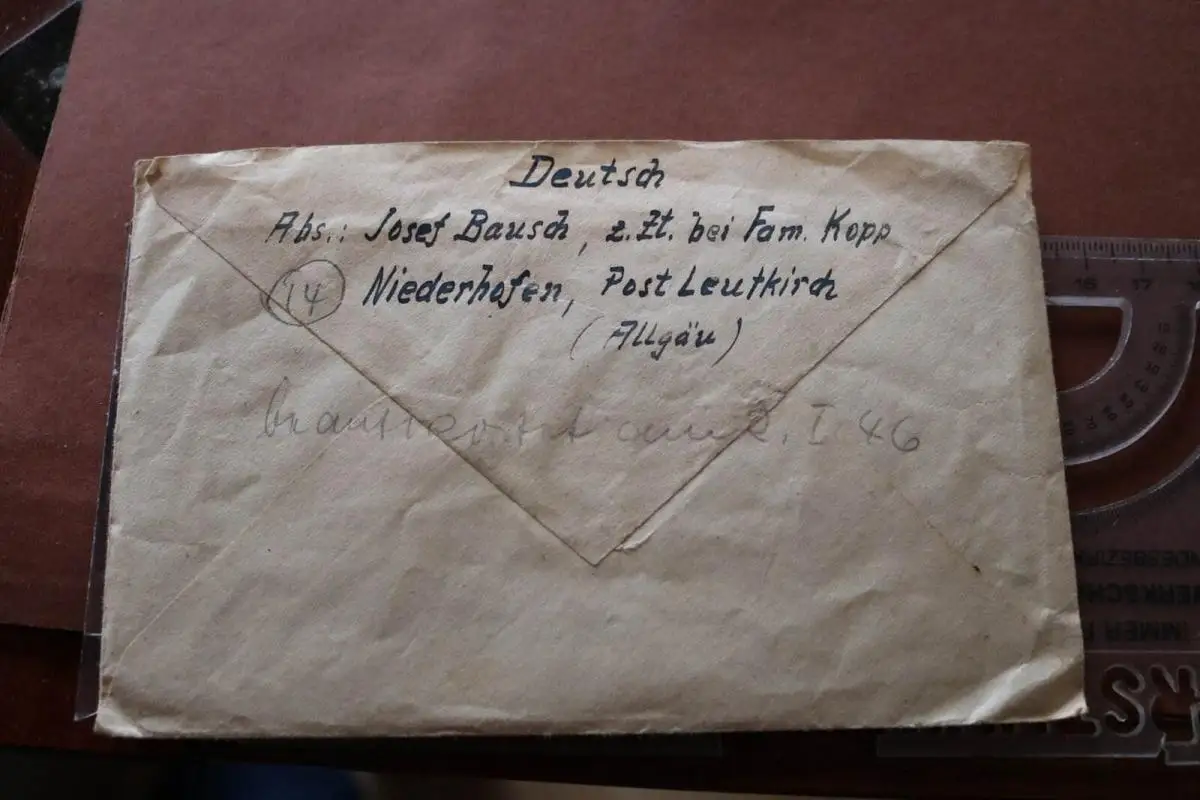 Deutsch
Abs.: Josef Bausch, z.Zt. bei Fam. Kopp
14 Niederhofen, Post Leutkirch
(Allgäu)
beantwortet am 2. I 46
16 17